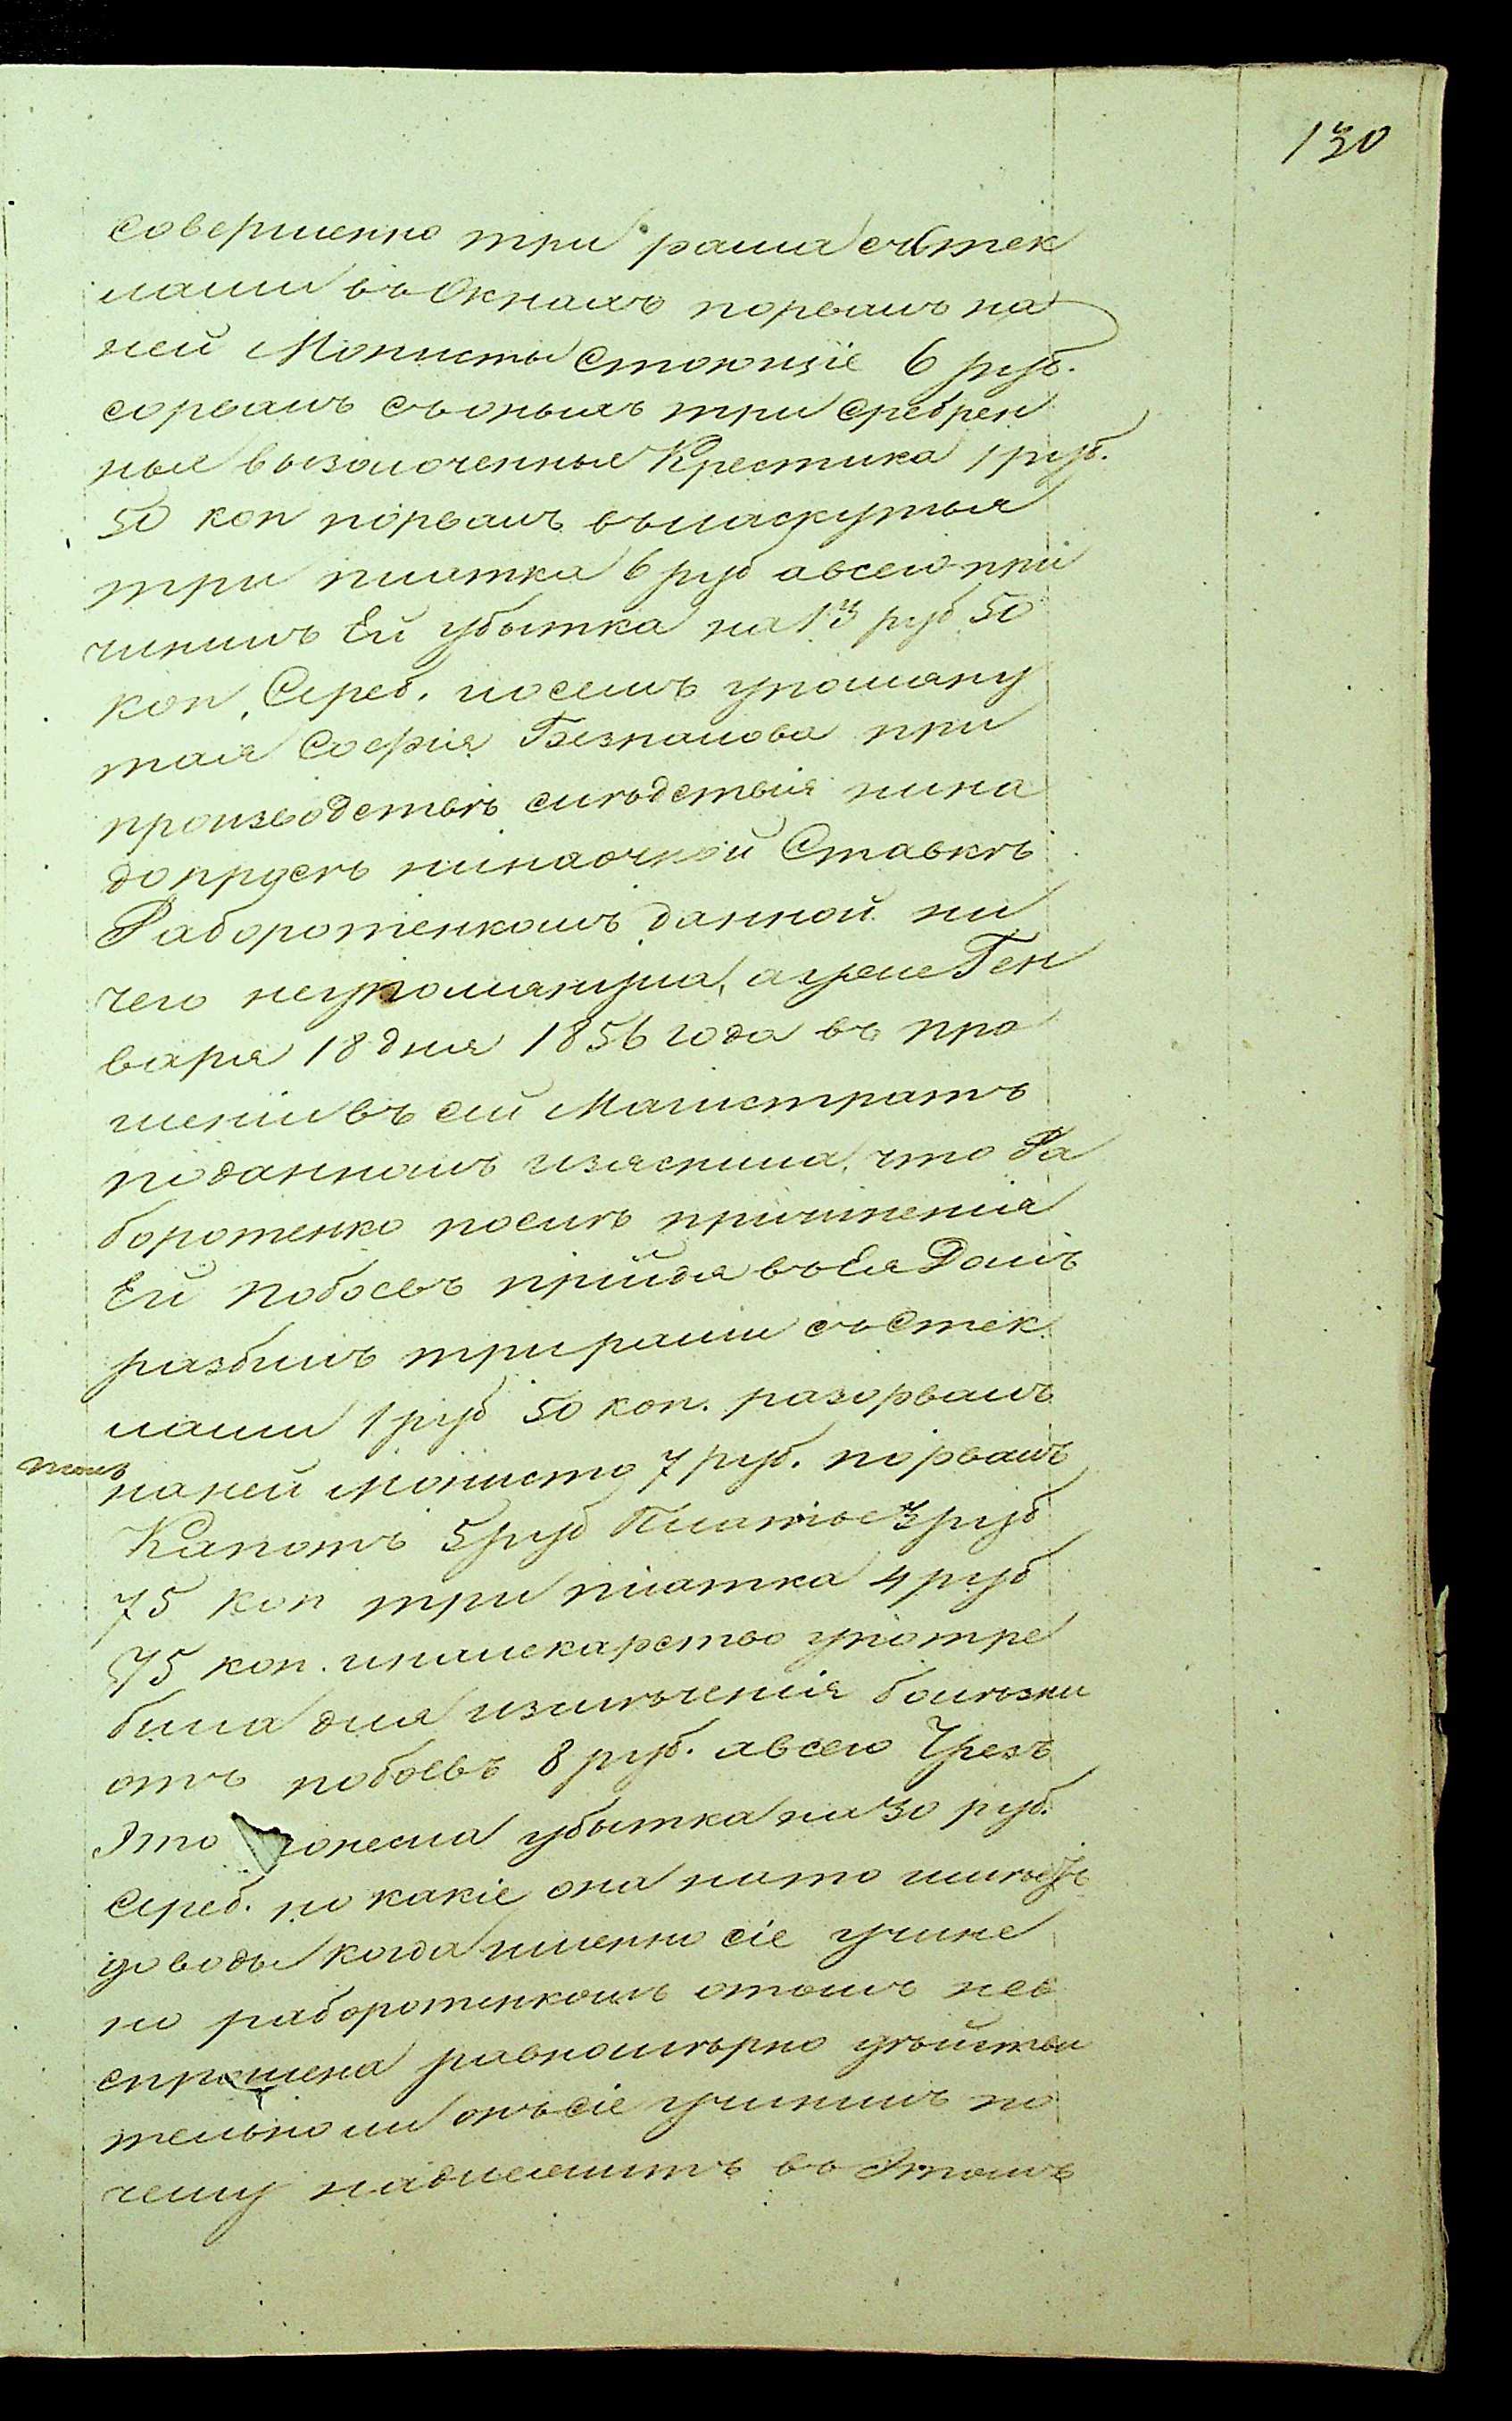 130
совершенно три рама сѣстек
лами въ Окнахъ порвалъ на
ней Монисты стоющіе 6 руб.
сорвалъ съоныхъ три сребрен
ныя вызолоченные Крестика 1 руб.
50 коп порвалъ въласкутья
три платка 6 руб авсего при
чинилъ Ей убытка на 13 руб 50
коп. Сереб. носемъ упомяну
тая Софія Безпалова при
производствѣ слѣдствія нина
допрусѣ нинаочной Ставкѣ
Раборотенкомъ данной ни
чего неупомянула, ауже Ген
варя 18 дня 1856 года въ про
шеніи въ сей Магистратъ
поданномъ изяснила, что Ра
боротенко послѣ причиненія
Ей побоевъ прійдя въ Ея Домъ
разбилъ три рами съ Стек
лами 1 руб 50 коп. разорвалъ
наней Монисто 7 руб. порвалъ
Капотъ 5 руб Платье 3 руб
75 коп три платка 4 руб
75 коп. иналекарство употре
била для излѣченія болѣзни
отъ побоевъ 8 руб. авсего Чрезъ
Это понесла убытка на 30 руб.
Сереб. но какіе она нато имѣетъ
доводы когда именно сіе учине
но раборотенкомъ отомъ нес
спрошена равномѣрно дѣйстви
тельно ли онъ сіе учинилъ по
чему надлежитъ въ Этомъ